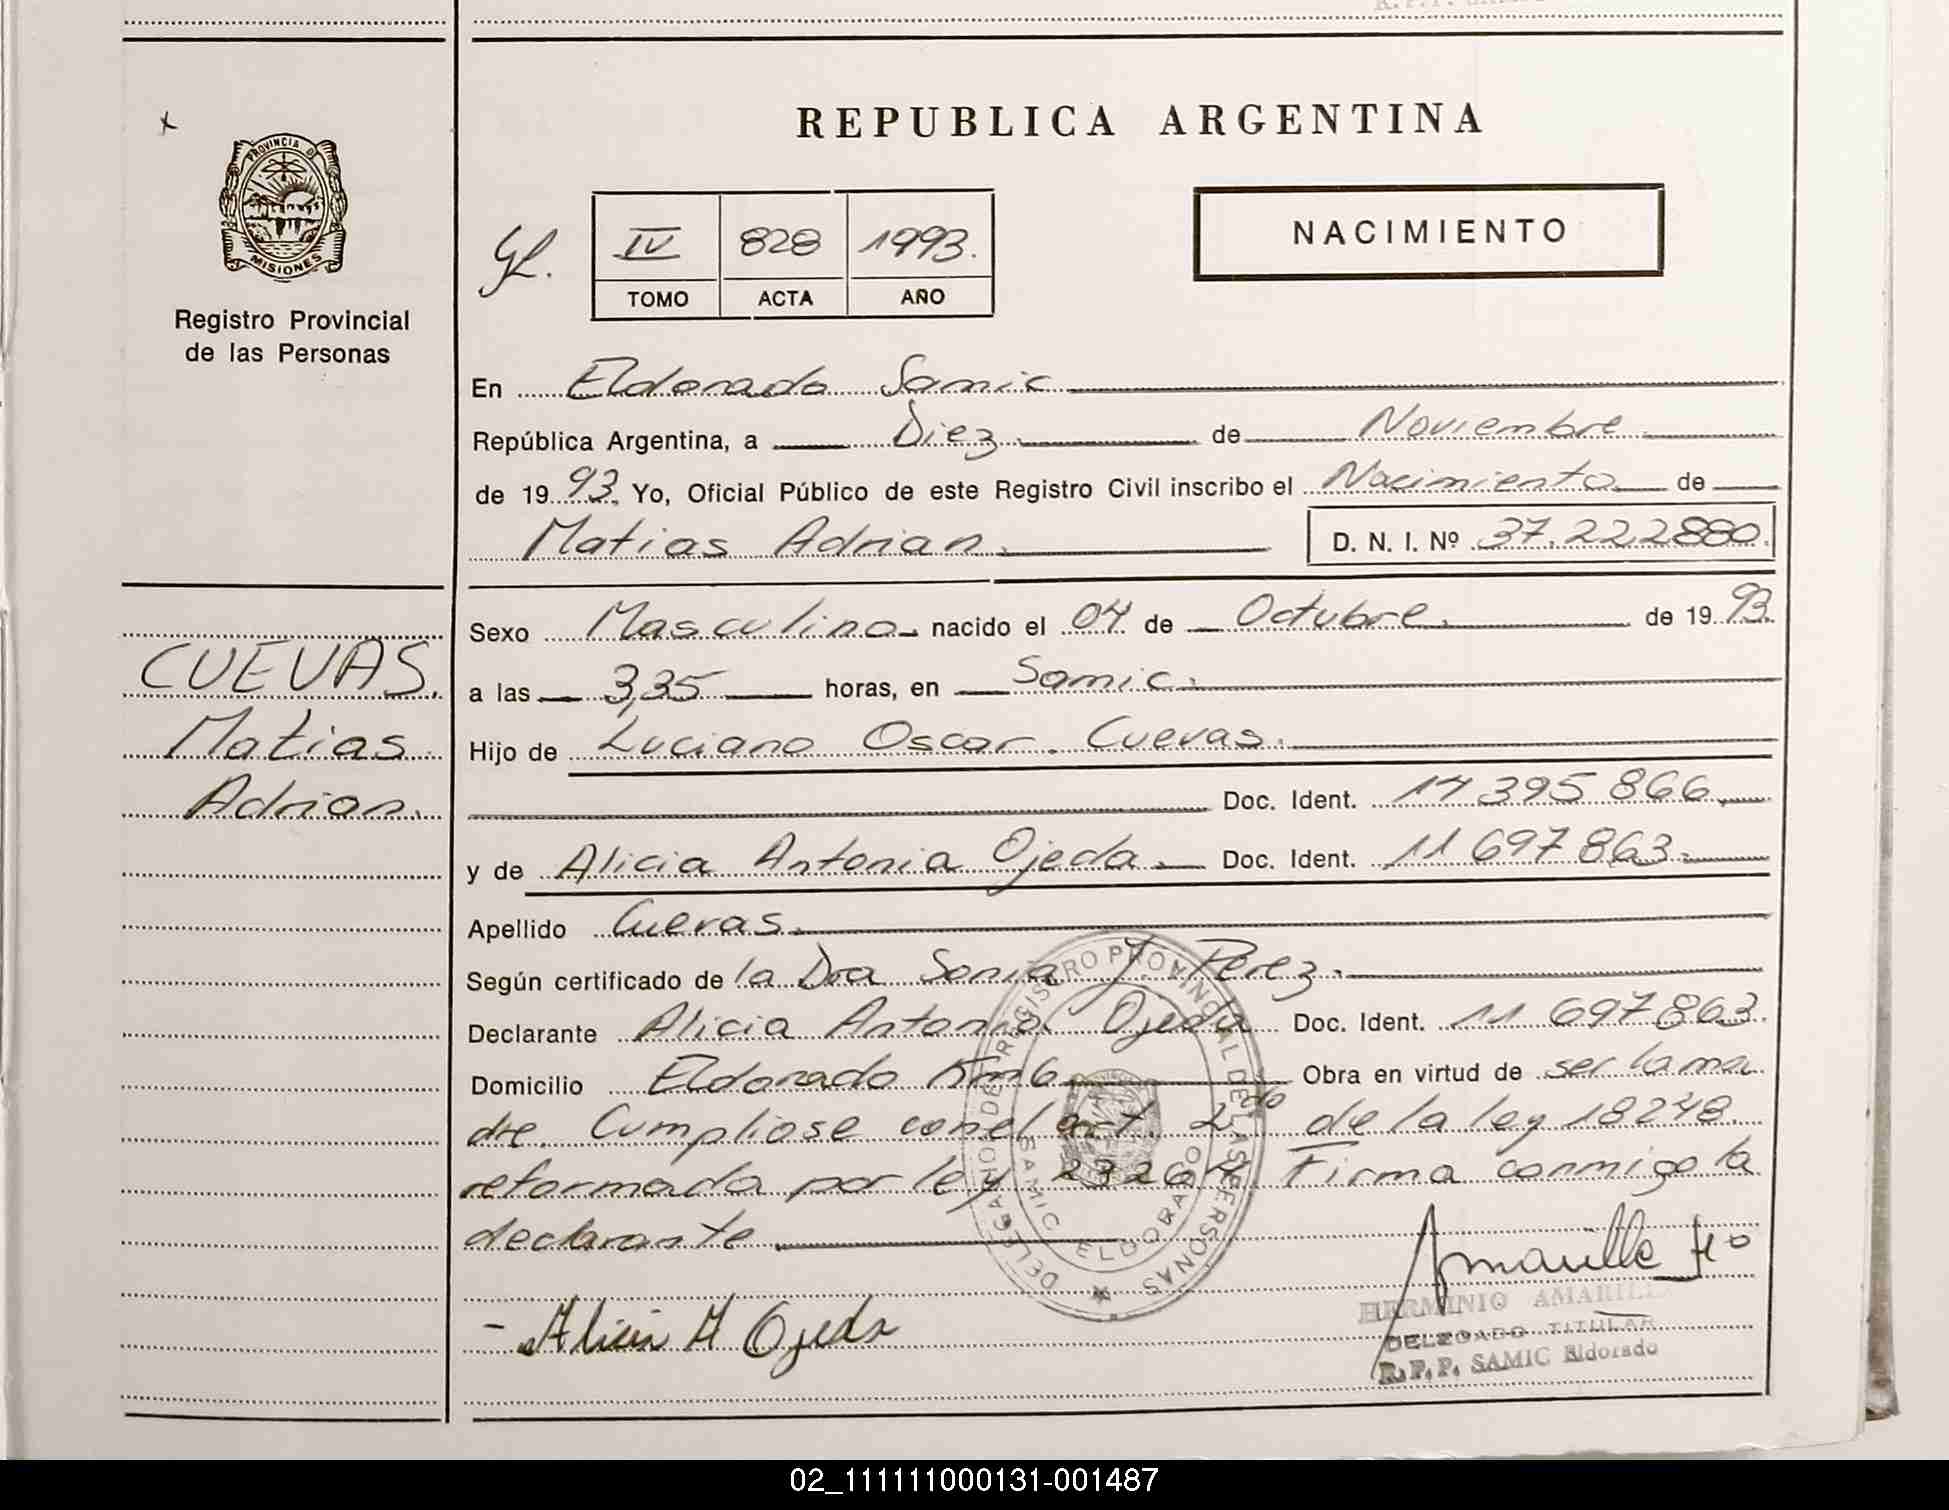 REPUBLICA ARGENTINA
PROVINCIA DE
MISIONES
Registro Provincial
de las Personas
IV 828 1993.
TOMO ACTA AÑO
NACIMIENTO
En Eldorado Samic
República Argentina, a Diez de Noviembre
de 1993. Yo, Oficial Público de este Registro Civil inscribo el Nacimiento de
Matias Adrian. D. N. I. Nº 37.222880.
CUEVAS.
Matias
Adrian.
Sexo Masculino. nacido el 04 de Octubre. de 1993.
a las 3,35 horas, en Samic.
Hijo de Luciano Oscar. Cuevas.
Doc. Ident. 17 395 866
y de Alicia Antonia Ojeda. Doc. Ident. 11 697 863.
Apellido Cuevas.
Según certificado de la Dra Sonia Y. Perez.
Declarante Alicia Antonia Ojeda Doc. Ident. 11 697 863.
Domicilio Eldorado Km 6. Obra en virtud de ser la ma
dre. Cumpliose con el art. 2do de la ley 18248.
reformada por ley 23264. Firma conmigo la
declarante
DELEGACION DE REGISTRO PROVINCIAL DE LAS PERSONAS
SAMIC ELDORADO
- Alicia A Ojeda
Amarilla Hº
HERMINIO AMARILLA
DELEGADO TITULAR
R. P. P. SAMIC Eldorado
02_111111000131-001487